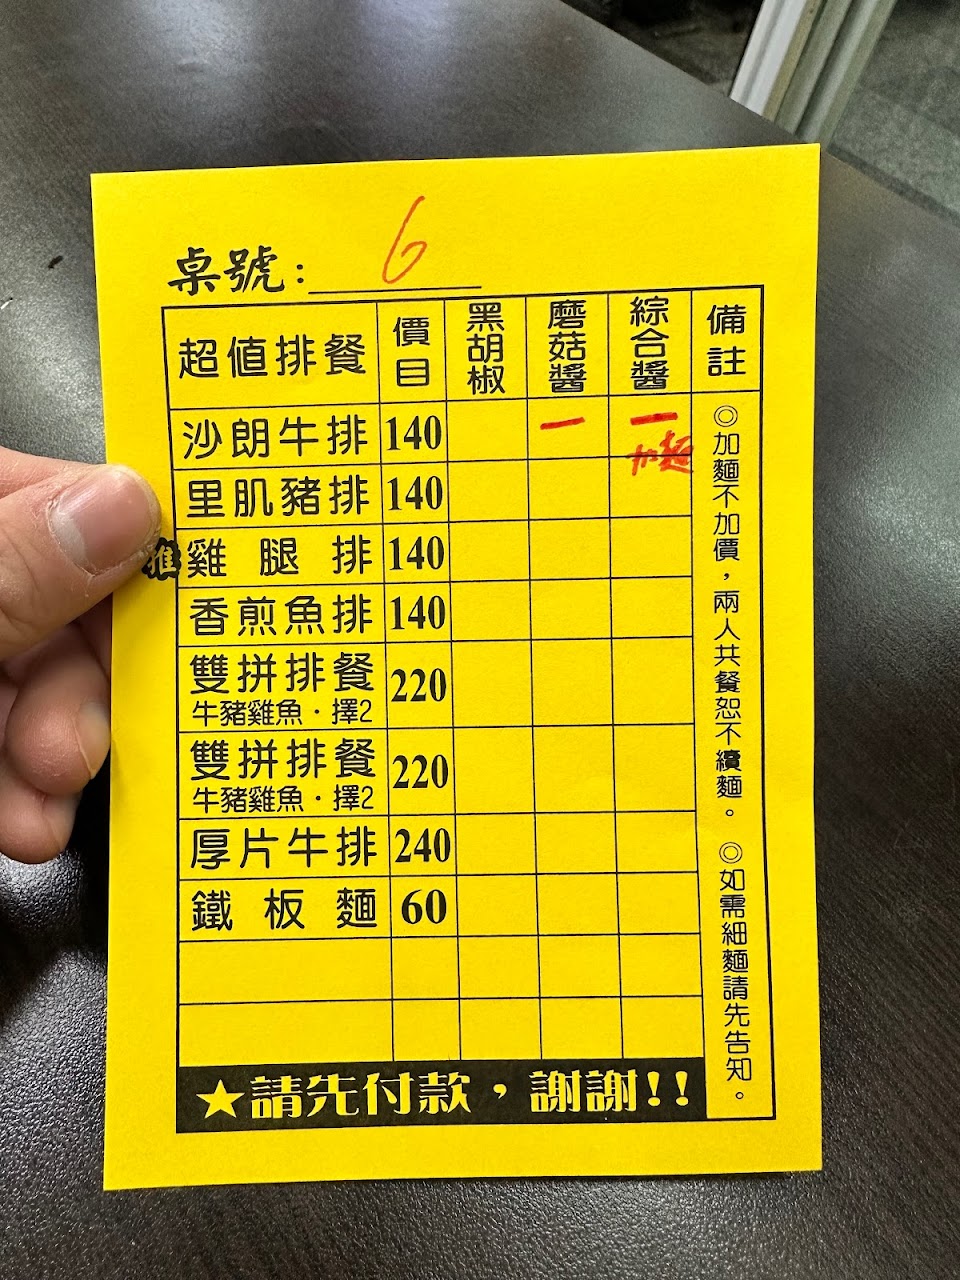 桌號：6
超值排餐 價目 黑胡椒 磨菇醬 綜合醬 備註
沙朗牛排 140 一 一
加麵
里肌豬排 140
推 雞腿排 140
香煎魚排 140
雙拼排餐 220
牛豬雞魚．擇2
雙拼排餐 220
牛豬雞魚．擇2
厚片牛排 240
鐵板麵 60
◎加麵不加價，兩人共餐恕不續麵。
◎如需細麵請先告知。
★請先付款，謝謝!!